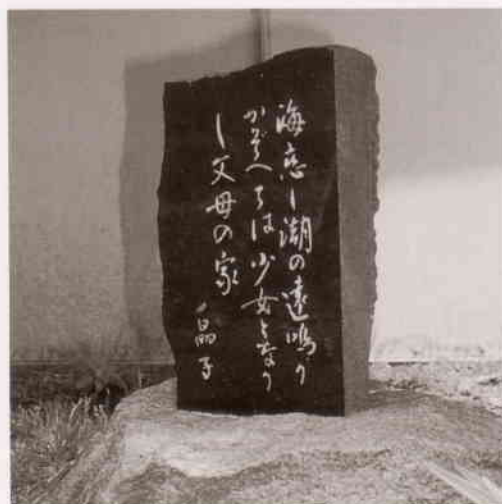 海恋し潮の遠鳴り
かぞへては少女となり
し父母の家
晶子